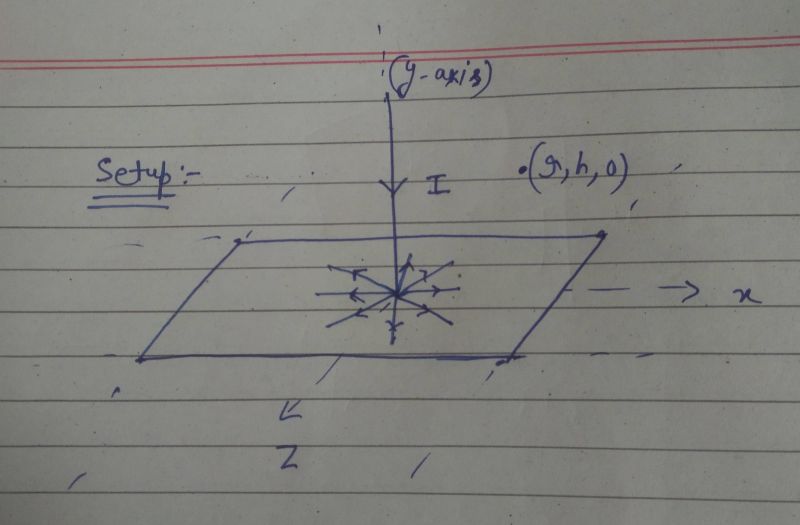 (y-axis)
Setup:-
I
.(r, h, 0)
x
Z